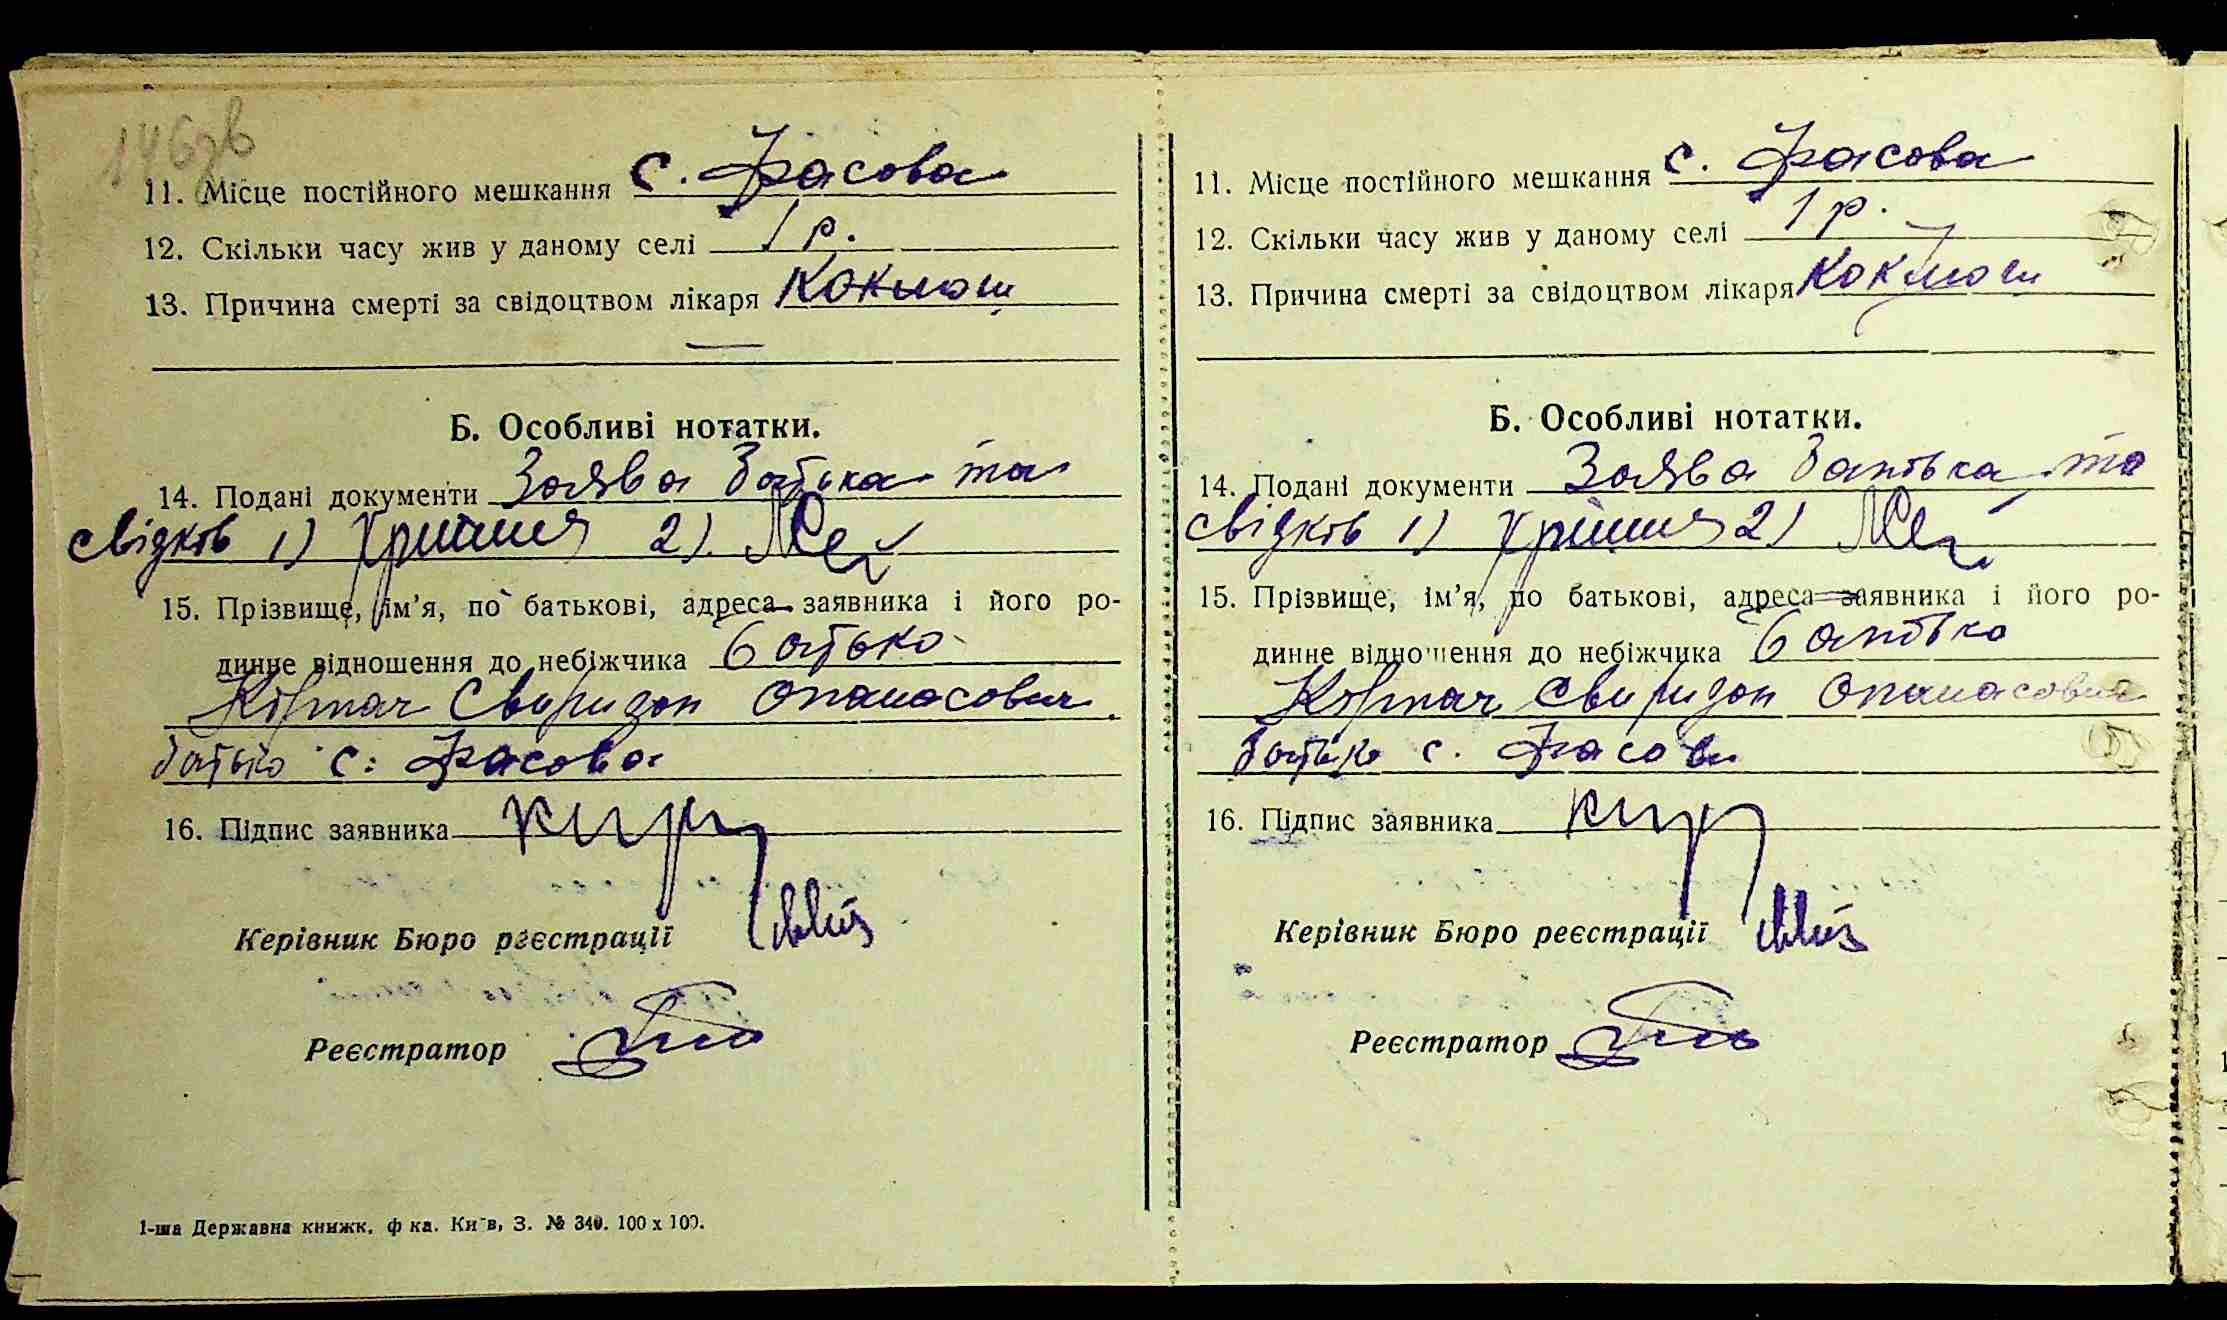 146зв
11. Місце постійного мешкання с. Фасова
12. Скільки часу жив у даному селі 1 р.
13. Причина смерті за свідоцтвом лікаря Коклюш
Б. Особливі нотатки.
14. Подані документи Заява батька та
свідків 1) 2)
15. Прізвище, ім'я, по батькові, адреса заявника і його ро-
динне відношення до небіжчика батько
Свиридон Опанасович
батько с. Фасова
16. Підпис заявника
Керівник Бюро реєстрації
Реєстратор
1-ша Державна книжк. ф-ка. Київ, З. № 340. 100 х 100.
11. Місце постійного мешкання с. Фасова
12. Скільки часу жив у даному селі 1 р.
13. Причина смерті за свідоцтвом лікаря Коклюш
Б. Особливі нотатки.
14. Подані документи Заява батька та
свідків 1) 2)
15. Прізвище, ім'я, по батькові, адреса заявника і його ро-
динне відношення до небіжчика батько
Свиридон Опанасович
батько с. Фасова
16. Підпис заявника
Керівник Бюро реєстрації
Реєстратор